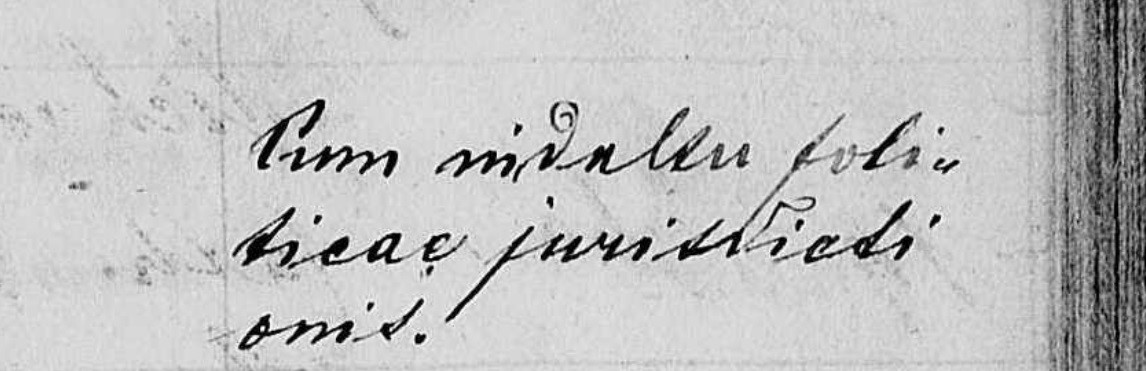 Cum indultu poli-
ticae jurisdicti
onis.